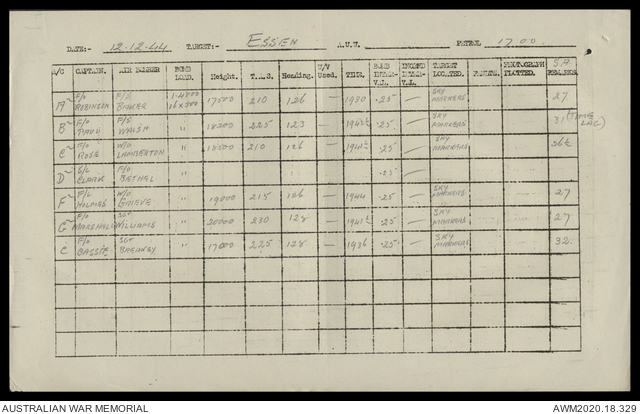 DATE:- 12-12-44 TARGET:- ESSEN A.U.W. PETROL 1700
A/C CAPTAIN. AIR BOMBER BOMB LOAD. Height. T.A.S. Heading. W/V Used. TIME. BOMB INTERVAL. INCEND INTERVAL. TARGET LOCATED. RESULTS. PHOTOGRAPH PLOTTED. S.A. REMARKS.
A F/O ROBINSON F/S BOWKER 1-4000 16x500 17500 210 126 — 1930 .25 — SKY MARKERS 27
B F/O F/S WALSH " 18200 225 123 — .25 — SKY MARKERS 31 (TIME LAG)
C F/O ROSE W/O LAMBERTON " 18500 210 126 — .25 — SKY MARKERS 26½
D S/L CLARK F/O BETHEL "
F F/L HOLMES W/O " 19000 215 126 — 1944 .25 — SKY MARKERS 27
G F/O MARSHALL SGT WILLIAMS " 20000 230 128 — .25 — SKY MARKERS 27
C F/O SGT " 17000 225 128 — 1936 .25 — SKY MARKERS 32.
AUSTRALIAN WAR MEMORIAL AWM2020.18.329